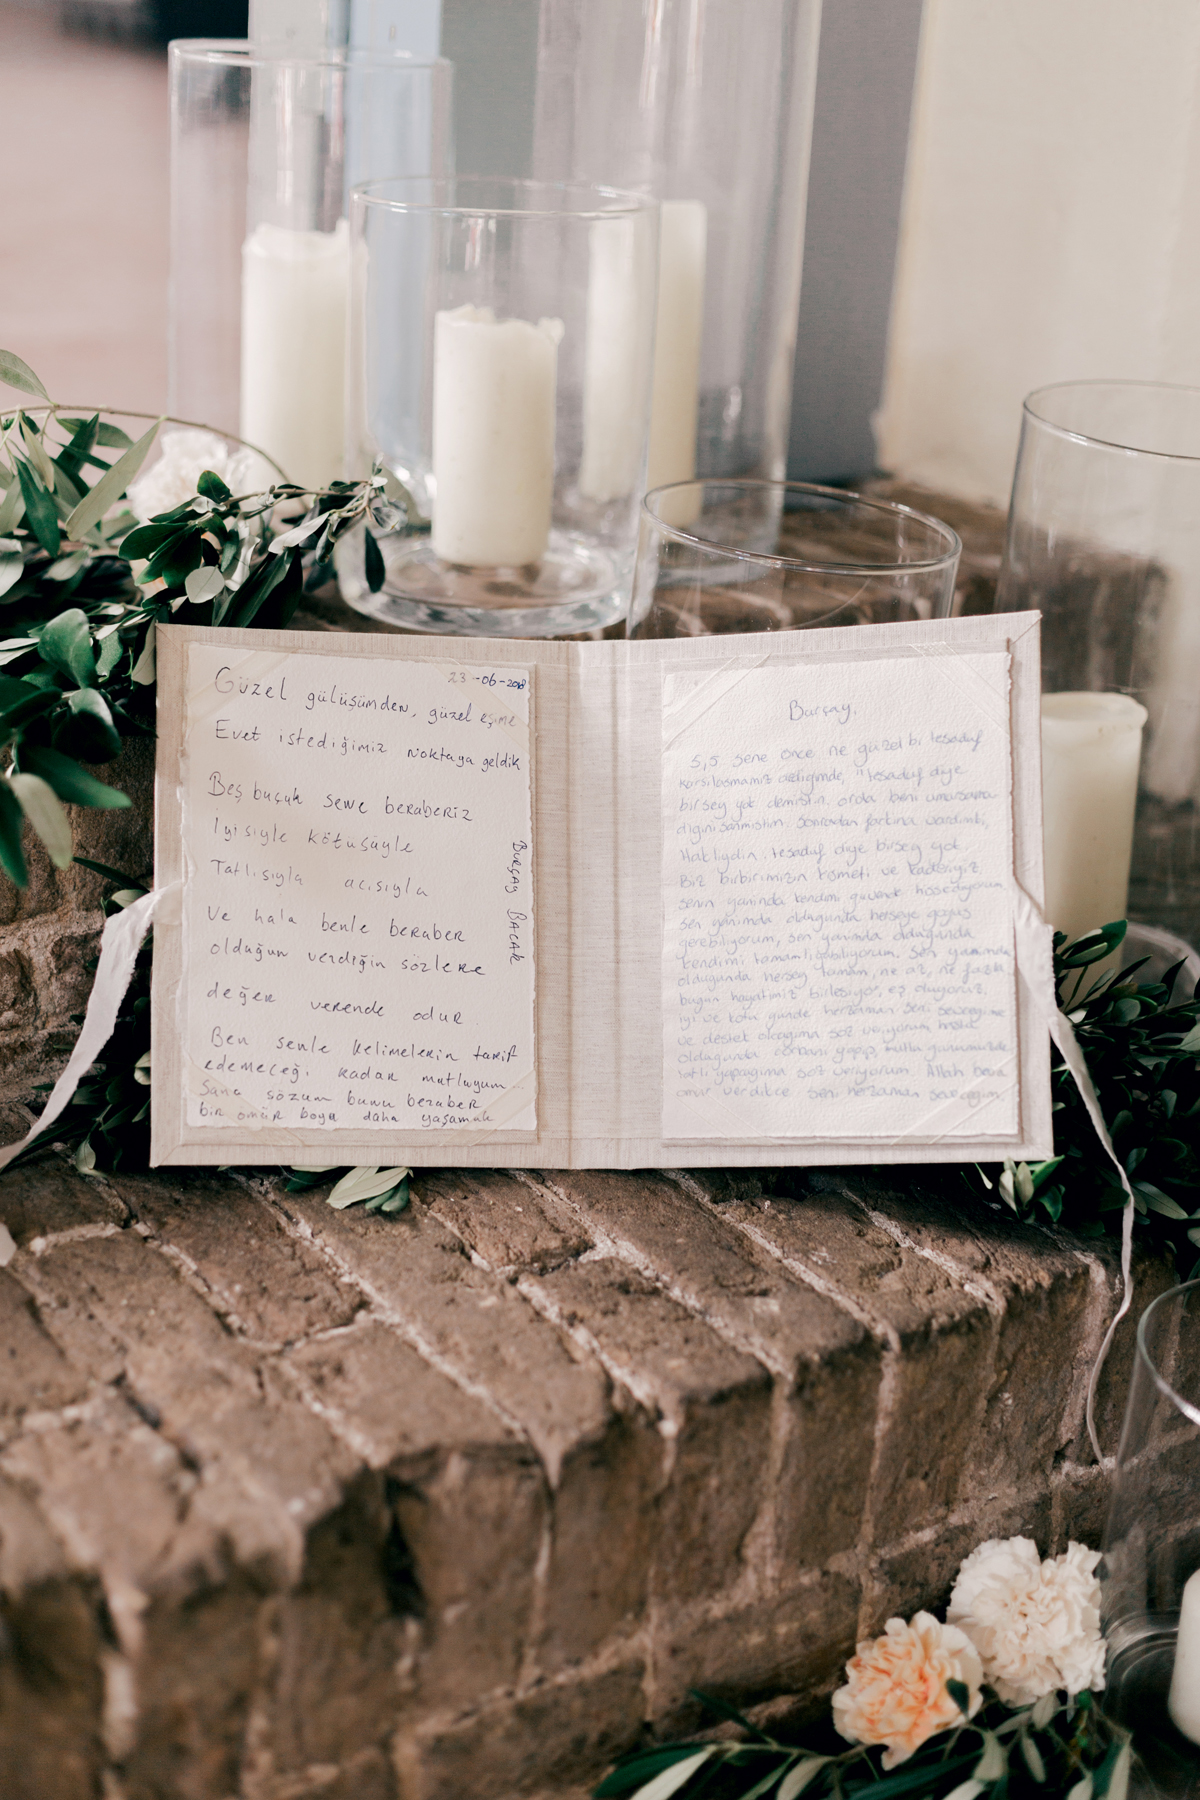 23-06-2018
Güzel gülüşümden, güzel eşime
Evet istediğimiz noktaya geldik
Beş buçuk sene beraberiz
Iyisiyle kötüsüyle
Tatlısıyla acısıyla
Ve hala benle beraber
olduğun verdiğin sözlere
değer verende odur.
Ben senle kelimelerin tarif
edemeceği kadar mutluyum...
Sana sözum bunu beraber
bir ömür boyu daha yaşamak
Burçay Bacak
Burçay,
5,5 sene önce ne güzel bi tesaduf
karsilasmamiz dedigimde, "tesaduf diye
birsey yok demistin. orda beni umursama
digini sanmistim. Sonradan farkina vardimki,
Hakliydin, tesaduf diye birsey yok.
Biz birbirimizin kismeti ve kaderiyiz.
Senin yaninda kendimi guvende hissediyorum,
sen yanimda oldugunda herseye gogus
gerebiliyorum, sen yanimda oldugunda
kendimi tamamliyabiliyorum. Sen yanimda
oldugunda hersey tamam, ne az, ne fazla
bugün hayatimiz birlesiyor, eş oluyoruz,
iyi ve kotu gunde herzaman seni sevecegime
ve destek olcagima soz veriyorum hasta
oldugunda corbani yapip, mutlu gunumuzde
tatli yapagima soz veriyorum. Allah bana
omur verdikce seni herzaman sevecegim.